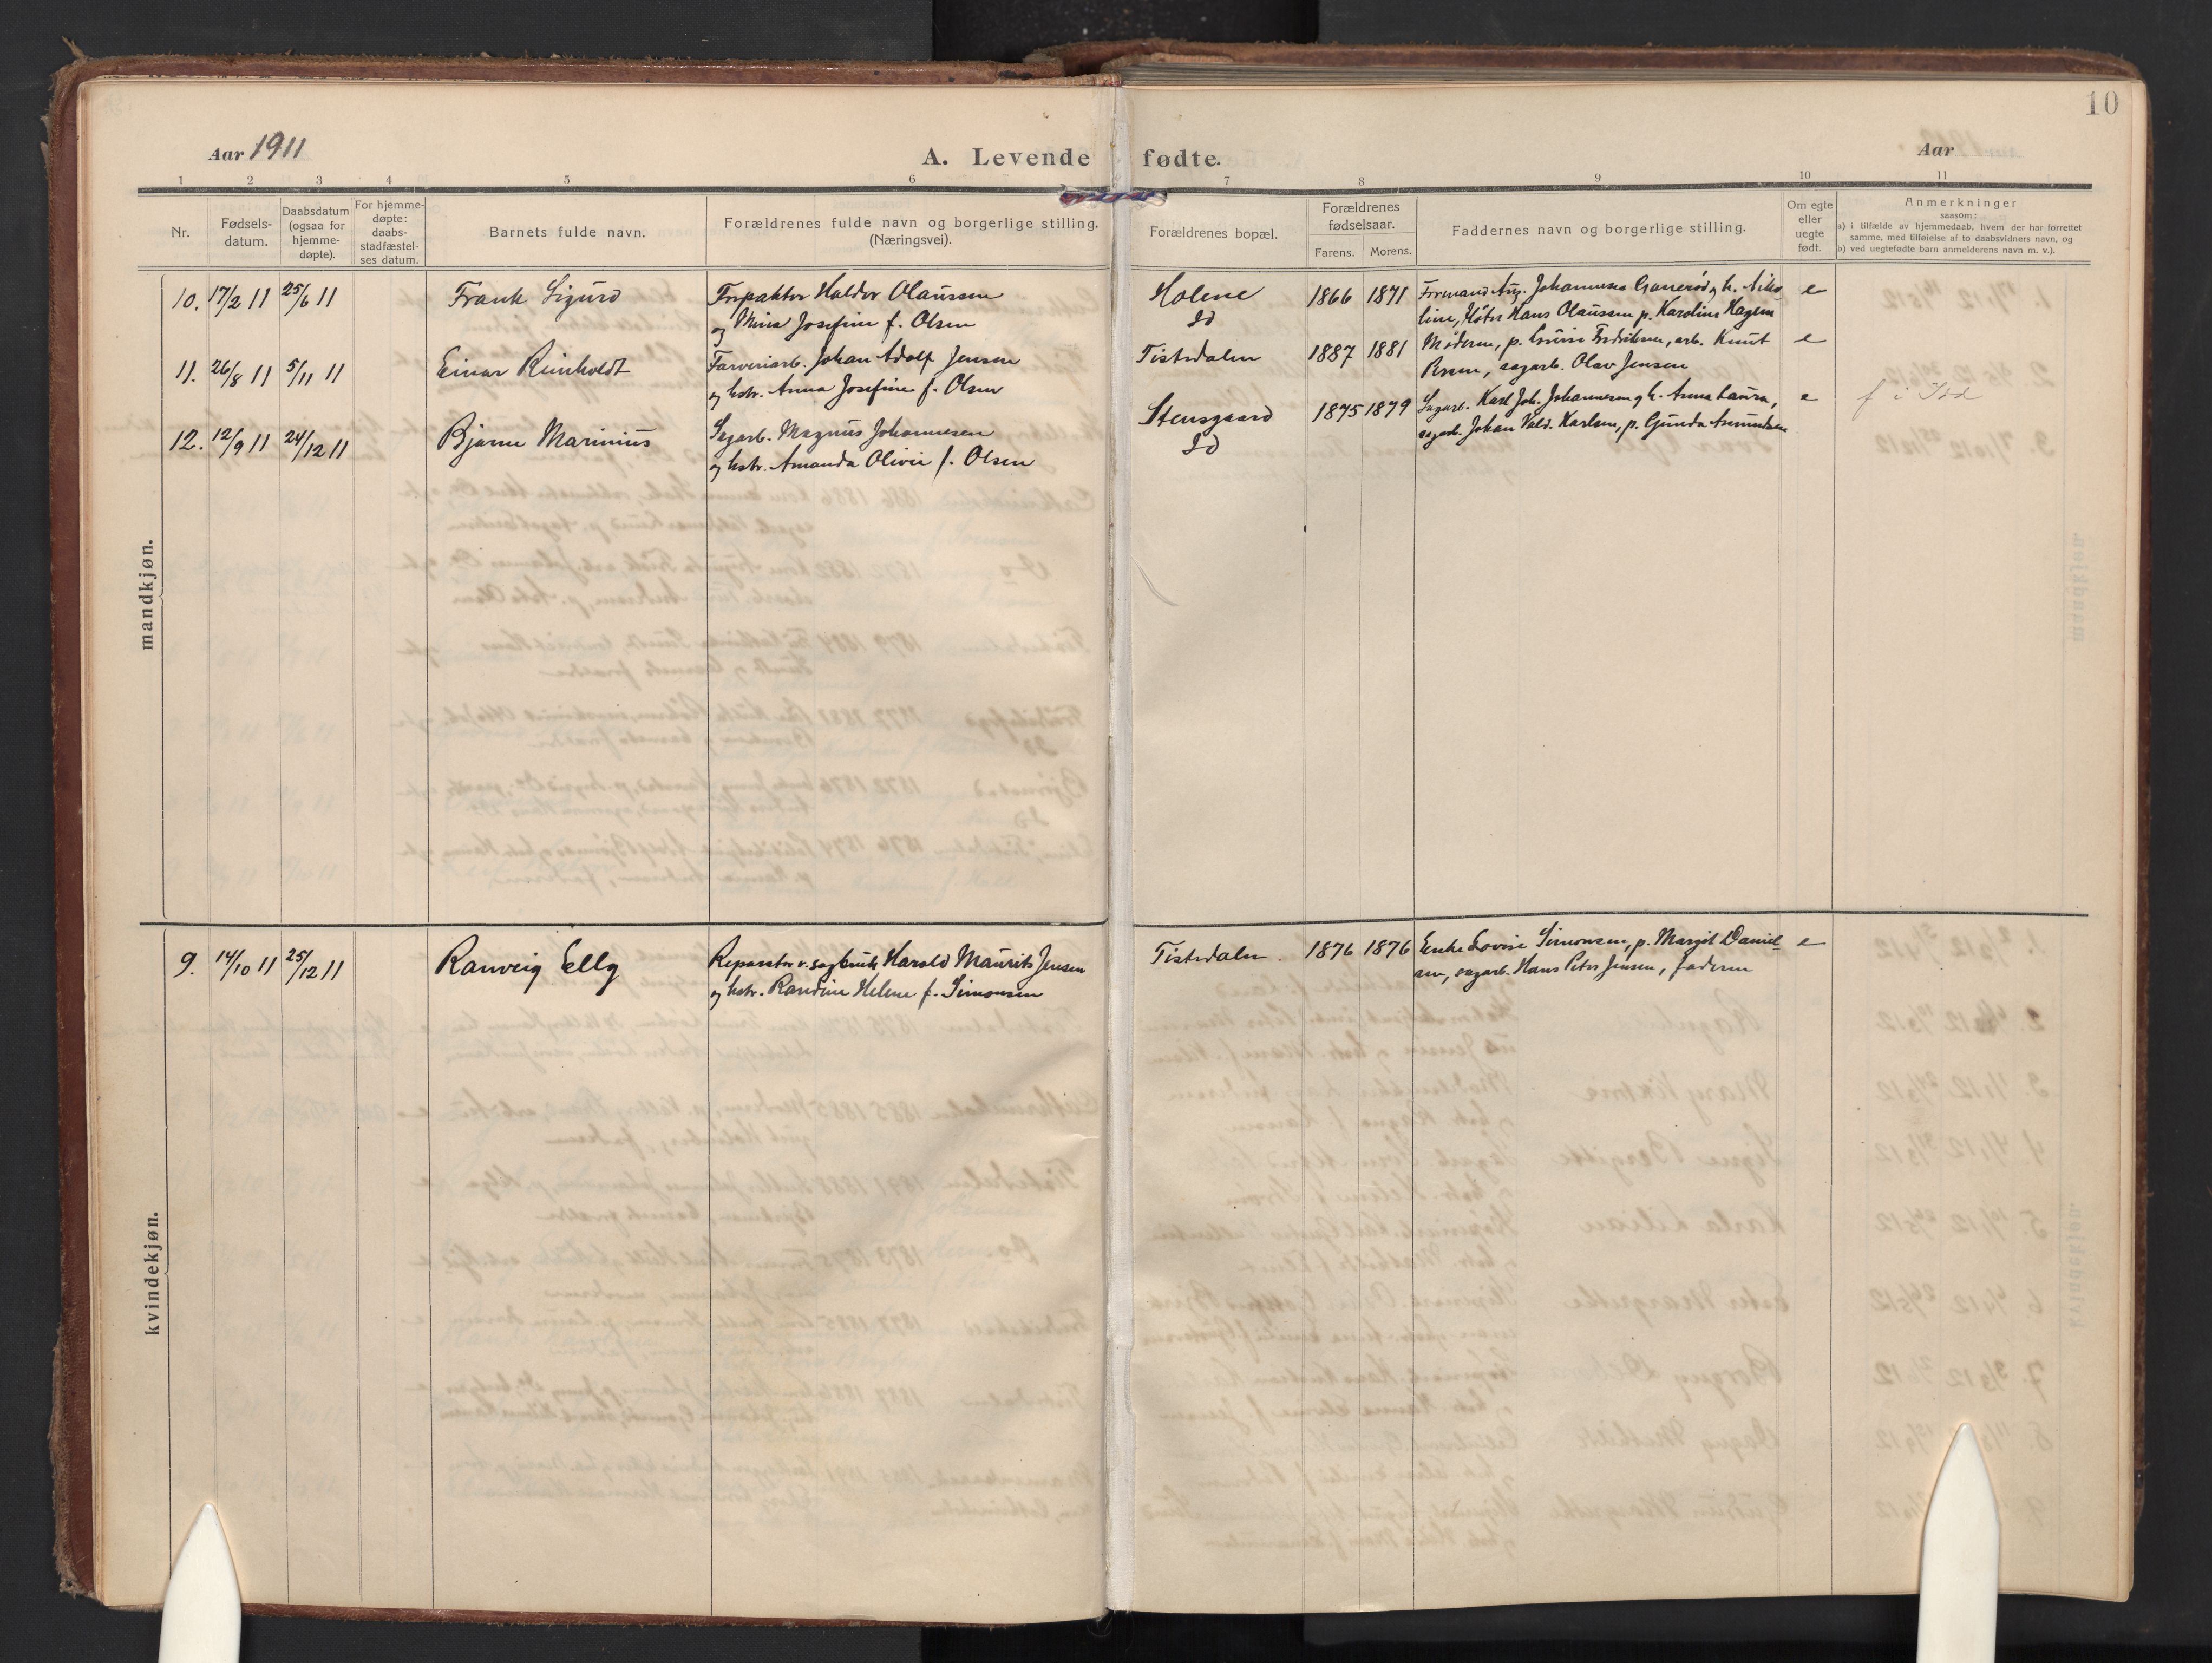 10
Aar 1911
A. Levende fødte.
Aar
1 2 3 4 5 6 7 8 9 10 11
Nr.
Fødsels-
datum.
Daabsdatum
(ogsaa for
hjemme-
døpte).
For hjemme-
døpte:
daabs-
stadfæstel-
ses datum.
Barnets fulde navn.
Forældrenes fulde navn og borgerlige stilling.
(Næringsvei).
Forældrenes bopæl.
Forældrenes
fødselsaar.
Farens. Morens.
Faddernes navn og borgerlige stilling.
Om egte
eller
uegte
født.
Anmerkninger
saasom:
a) i tilfælde av hjemmedaab, hvem der har forrettet
samme, med tilføielse af to daabsvidners navn, og
b) ved uegtefødte barn anmelderens navn m. v.).
mandkjøn.
10. 17/2 11 25/6 11 Frank Sigurd Haldor Olaussen Holene 1866 1871 Formand Aug. Johannesen h. Niko e
og Mina Josefine f. Olsen Id line, Hans Olaussen p. Karoline Hagen
11. 26/8 11 5/11 11 Einar Reinholdt Farveriarb. Johan Adolf Jensen Tistedalen 1887 1881 Moderen, p. Lovise Fredriksen, arb. Knut e
og hstr. Anna Josefine f. Olsen sagarb. Olav Jensen
12. 12/9 11 24/12 11 Bjarne Marinius Sagarb. Magnus Johannesen Stensgaard 1875 1879 Sagarb. Karl Joh. Johannesen og h. Anna Laura, e f i Idd
og hstr. Amanda Olivie f. Olsen Id sagarb. Johan Vald. Karlsen, p. Gunda Asmundsen
kvindekjøn.
9. 14/10 11 25/12 11 Ranveig Elly Reparatør v. sagbruk Harald Maurits Jensen Tistedalen. 1876 1876 Enke Lovise Simonsen, p. Margit Daniel e
og hstr. Randine Helene f. Simonsen sen, sagarb. Hans Peter Jensen, faderen